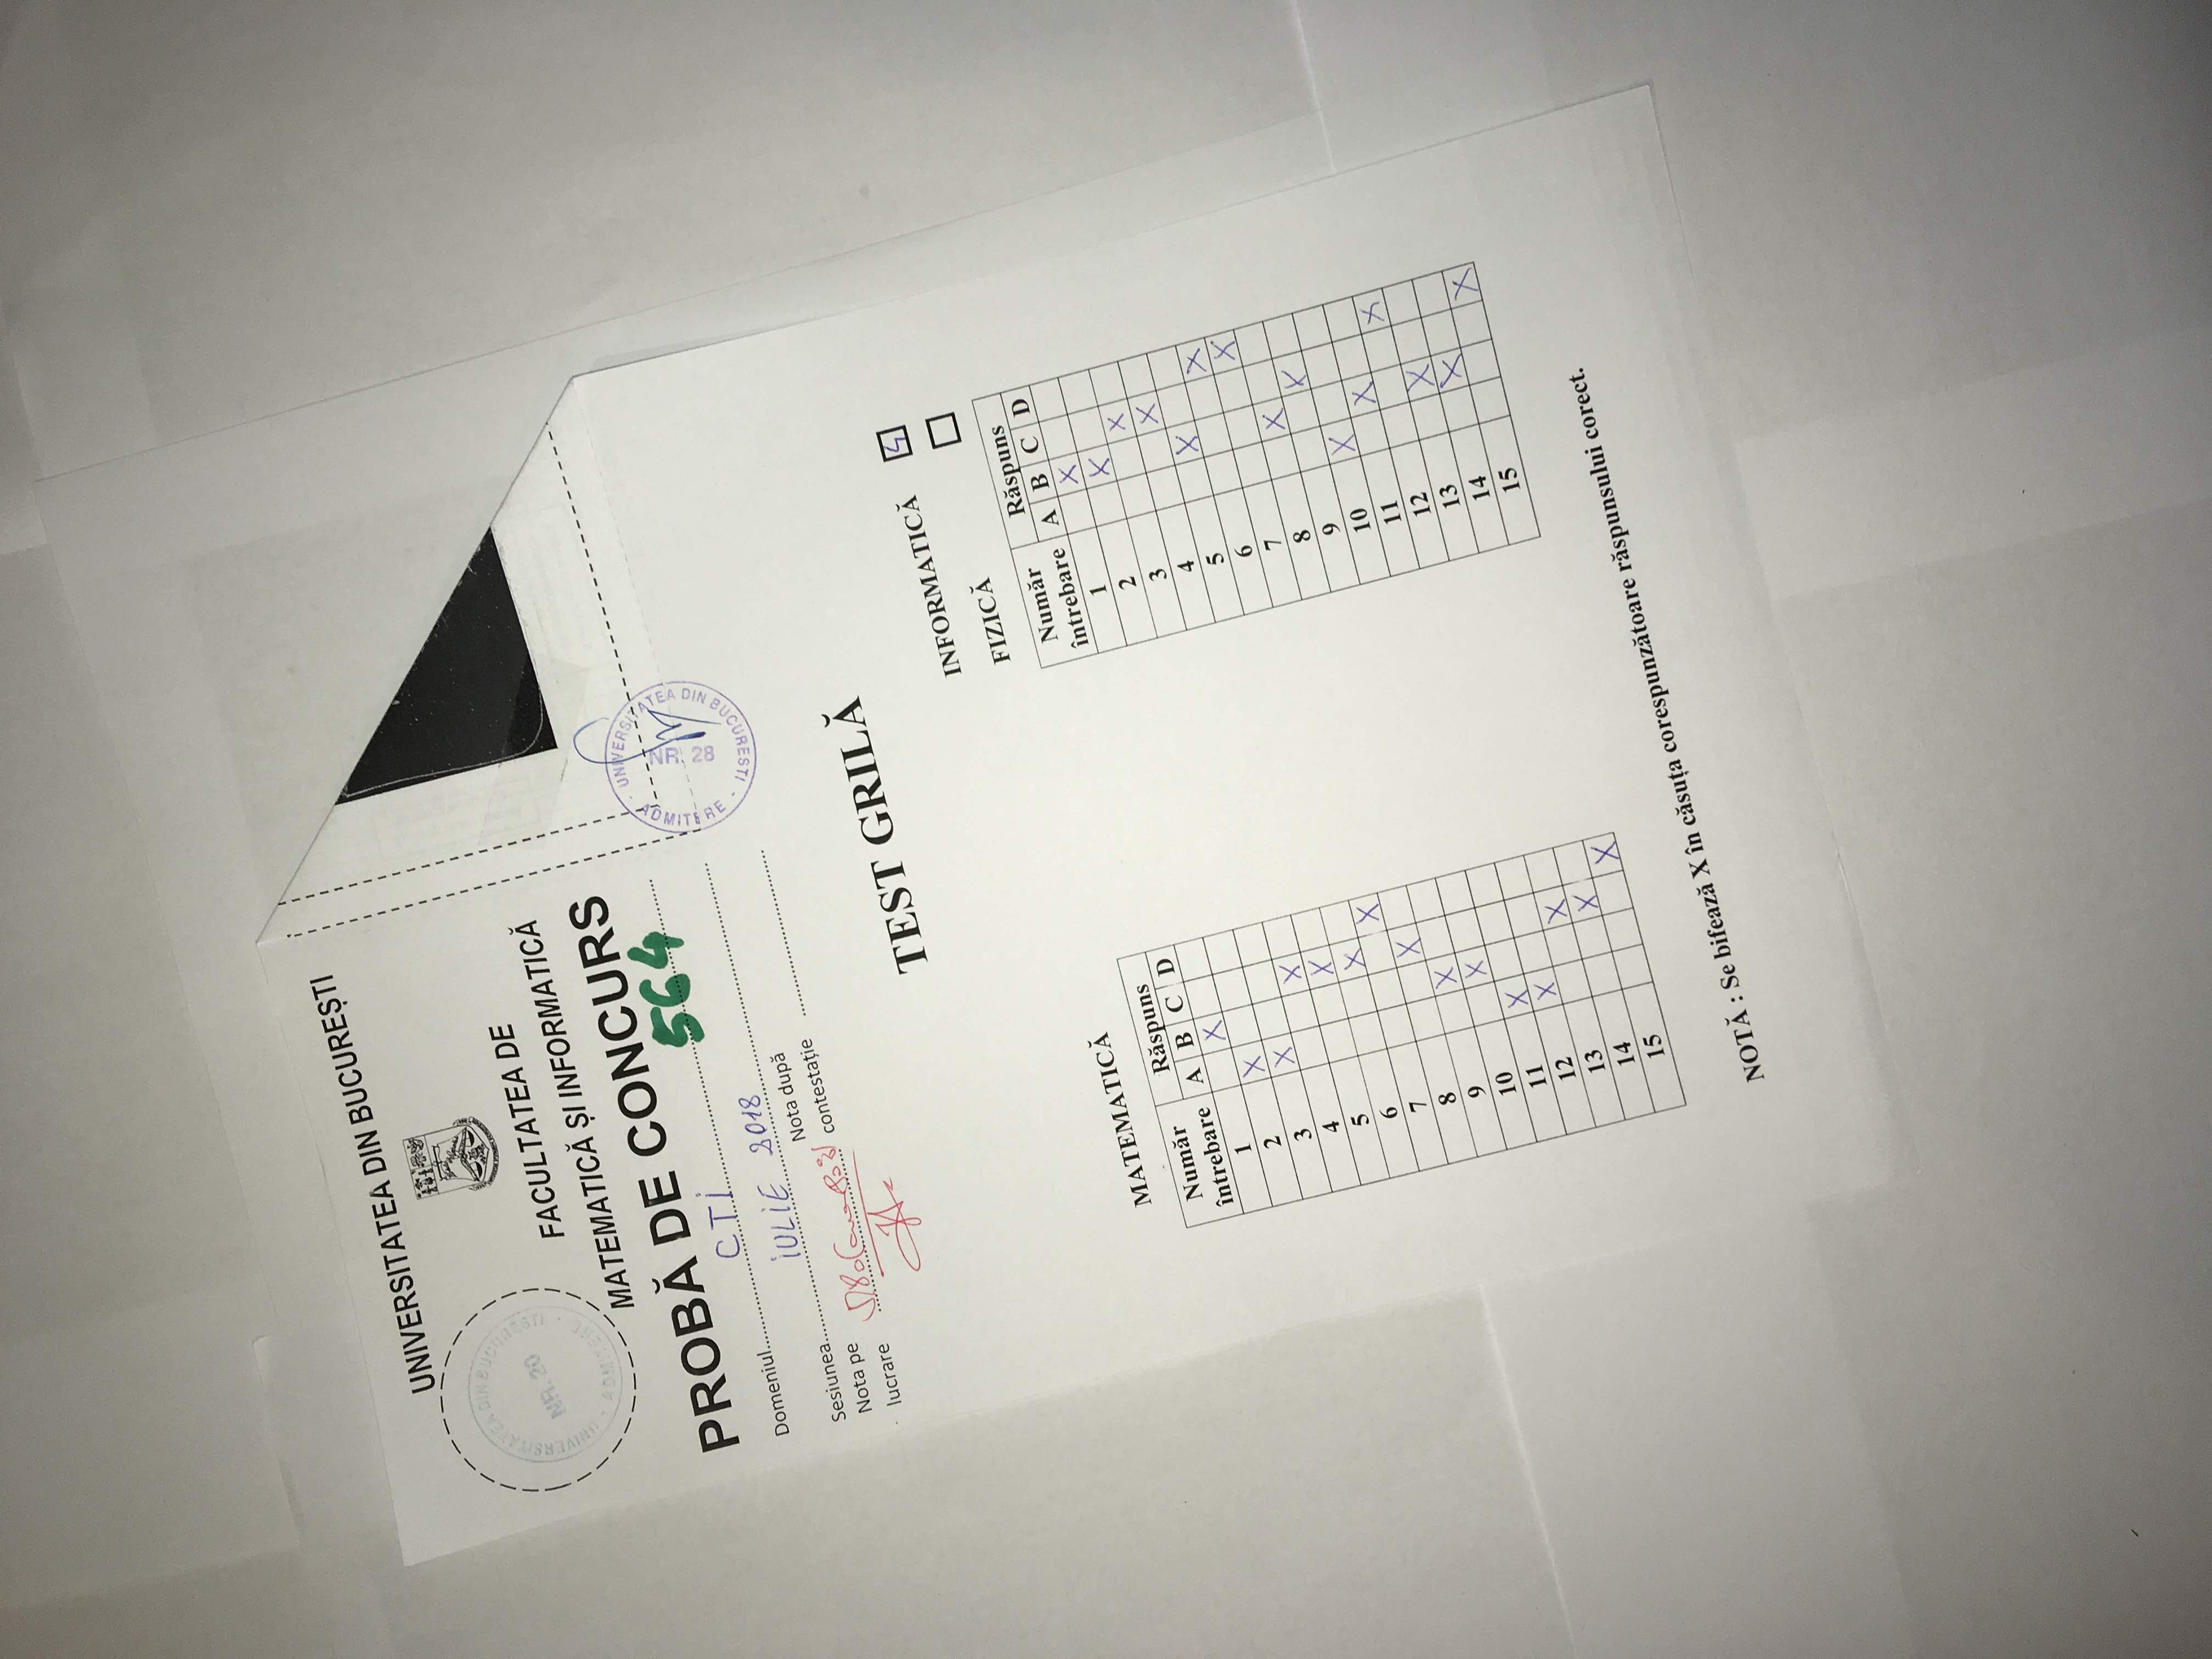 UNIVERSITATEA DIN BUCUREȘTI
UNIVERSITATEA DIN BUCURESTI - ADMITERE -
NR. 20
FACULTATEA DE
MATEMATICĂ ȘI INFORMATICĂ
PROBĂ DE CONCURS
564
Domeniul CTI
Sesiunea IULIE 2018
Nota pe lucrare
Nota după contestație
UNIVERSITATEA DIN BUCURESTI - ADMITERE -
NR. 28
TEST GRILĂ
INFORMATICĂ
FIZICĂ
MATEMATICĂ
Număr întrebare Răspuns
A B C D
1 X
2 X
3 X
4 X
5 X
6 X
7 X
8 X
9 X
10 X
11 X
12 X
13 X
14 X
15 X
Număr întrebare Răspuns
A B C D
1 X
2 X
3 X
4 X
5 X
6 X
7 X
8 X
9 X
10 X
11 X
12 X
13 X
14 X
15 X
NOTĂ : Se bifează X în căsuța corespunzătoare răspunsului corect.